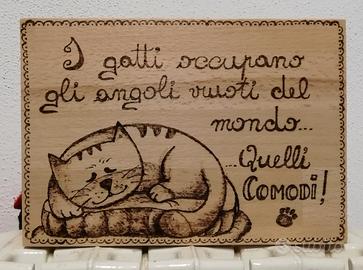 I gatti occupano
gli angoli vuoti del
mondo...
...Quelli
COMODI!